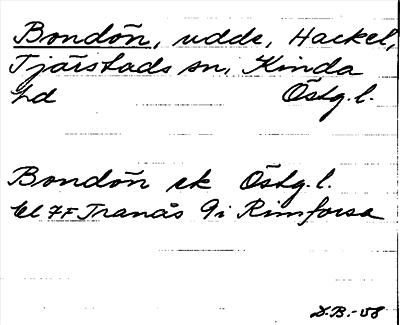 Bondön, udde, Hackel,
Tjärstads sn, Kinda
hd Östg.l.
Bondön ek Östg.l.
El 7F Tranås 9i Rimforsa
D.B.-58